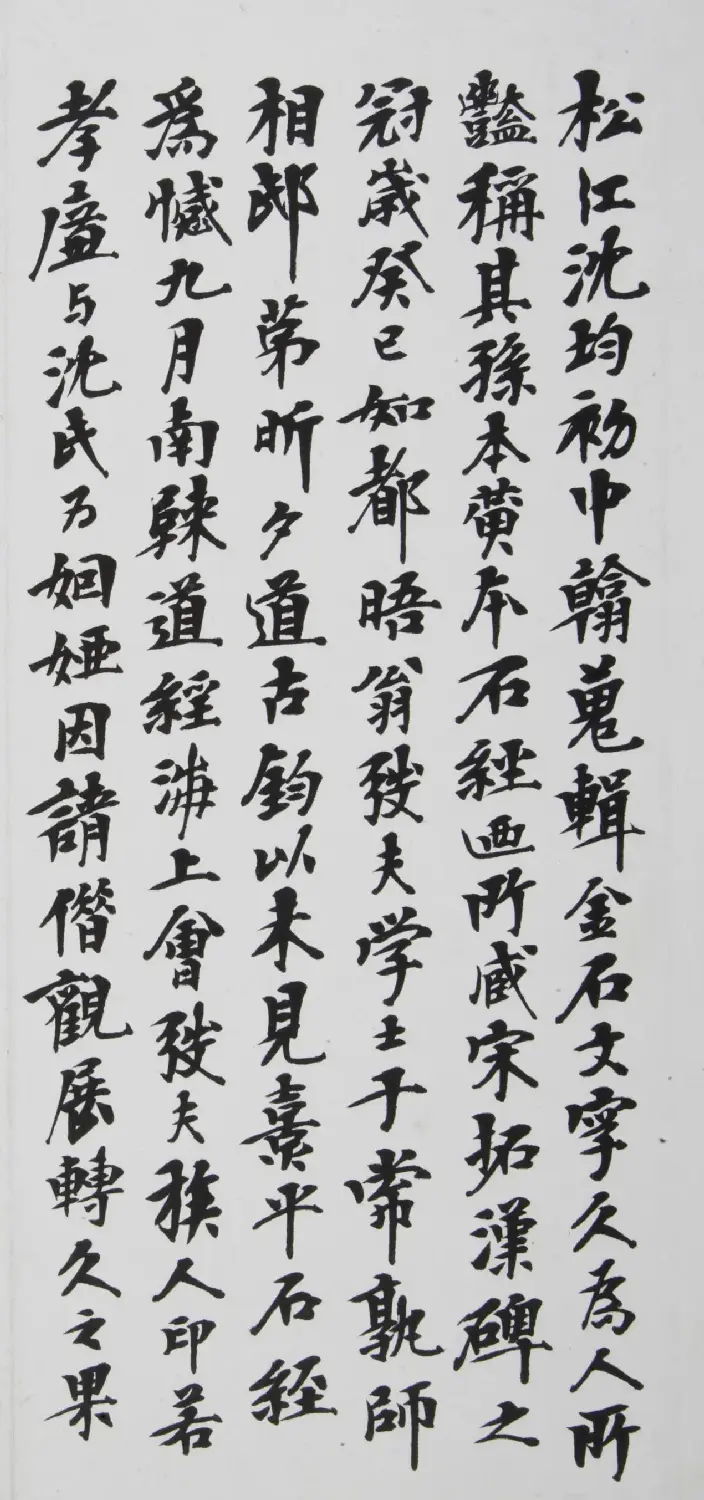 松江沈均初中翰蒐輯金石文字久為人所
豔稱其孫本黃本石經西所藏宋拓漢碑之
冠歲癸巳如都晤翁弢夫学士于常孰師
相邸第昕夕道古鈞以未見熹平石經
為憾九月南歸道經海上會弢夫族人印若
孝廉与沈氏为姻婭因請偕觀展轉久之果